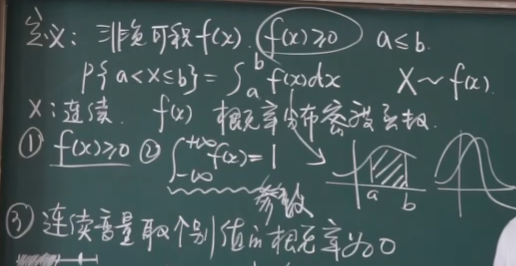 定义：非负可积f(x). f(x)≥0 a≤b.
P{a<X≤b}=∫ₐᵇf(x)dx X~f(x).
X:连续. f(x) 概率分布密度函数.
① f(x)≥0 ② ∫₋∞⁺∞f(x)=1
a b
参数
③ 连续变量取个别值的概率为0